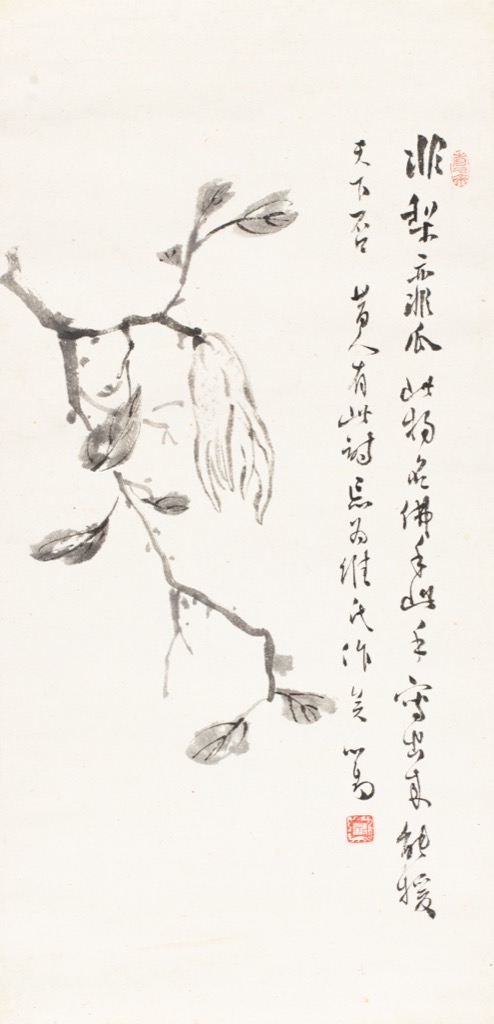 非梨亦非瓜此物名佛手此手寫出来能援
天下否昔人有此詩忘為誰氏作矣心畬